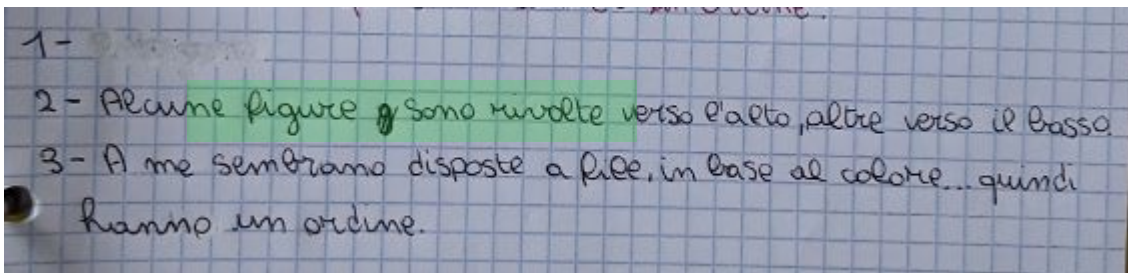 1-
2- Alcune figure sono rivolte verso l'alto, altre verso il basso.
3- A me sembrano disposte a file, in base al colore... quindi
hanno un ordine.